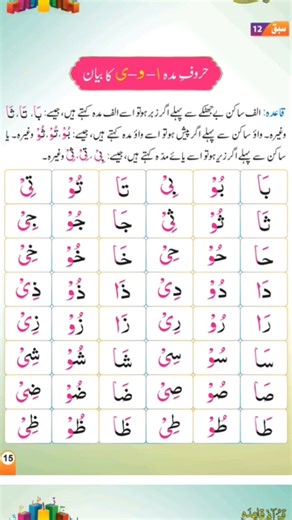 سبق 12
حروفِ مدہ ا - و - ی کا بیان
قاعدہ: الف ساکن بے جھٹکے سے پہلے اگر زبر ہو تو اسے الف مدہ کہتے ہیں، جیسے: بَا، تَا، ثَا
وغیرہ۔ واؤ ساکن سے پہلے اگر پیش ہو تو اسے واؤ مدہ کہتے ہیں، جیسے: بُوْ، تُوْ، ثُوْ وغیرہ۔ یا
ساکن سے پہلے اگر زیر ہو تو اسے یائے مدّہ کہتے ہیں، جیسے: بِیْ، تِیْ، ثِیْ وغیرہ۔
بَا بُوْ بِیْ تَا تُوْ تِیْ
ثَا ثُوْ ثِیْ جَا جُوْ جِیْ
حَا حُوْ حِیْ خَا خُوْ خِیْ
دَا دُوْ دِیْ ذَا ذُوْ ذِیْ
رَا رُوْ رِیْ زَا زُوْ زِیْ
سَا سُوْ سِیْ شَا شُوْ شِیْ
صَا صُوْ صِیْ ضَا ضُوْ ضِیْ
طَا طُوْ طِیْ ظَا ظُوْ ظِیْ
15